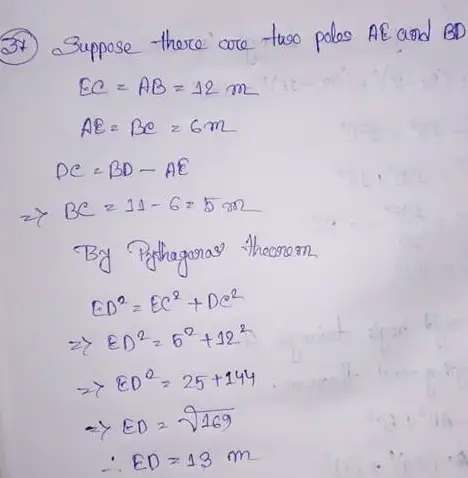 37 Suppose there are two poles AE and BD
EC = AB = 12 m
AE = BC = 6m
DC = BD - AE
=> BC = 11 - 6 = 5 m
By Pythagoras theorem
ED² = EC² + DC²
=> ED² = 5² + 12²
=> ED² = 25 + 144
=> ED = √169
∴ ED = 13 m